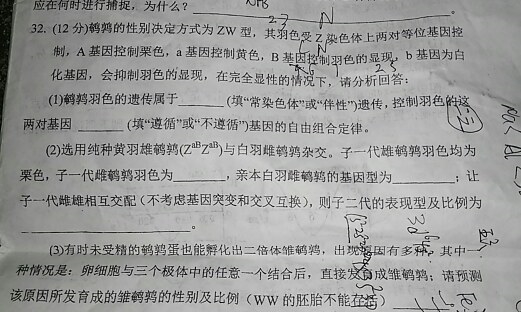 应在何时进行捕捉，为什么？
32. (12 分)鹌鹑的性别决定方式为 ZW 型，其羽色受 Z 染色体上两对等位基因控
制，A 基因控制栗色，a 基因控制黄色，B 基因控制羽色的显现，b 基因为白
化基因，会抑制羽色的显现，在完全显性的情况下，请分析回答：
(1)鹌鹑羽色的遗传属于______(填“常染色体”或“伴性”)遗传，控制羽色的这
两对基因______(填“遵循”或“不遵循”)基因的自由组合定律。
(2)选用纯种黄羽雄鹌鹑(ZaBZaB)与白羽雌鹌鹑杂交。子一代雄鹌鹑羽色均为
栗色，子一代雌鹌鹑羽色为______，亲本白羽雌鹌鹑的基因型为______；让
子一代雌雄相互交配（不考虑基因突变和交叉互换），则子二代的表现型及比例为
______。
(3)有时未受精的鹌鹑蛋也能孵化出二倍体雏鹌鹑，出现原因有多种，其中一
种情况是：卵细胞与三个极体中的任意一个结合后，直接发育成雏鹌鹑；请预测
该原因所发育成的雏鹌鹑的性别及比例（WW 的胚胎不能存活）